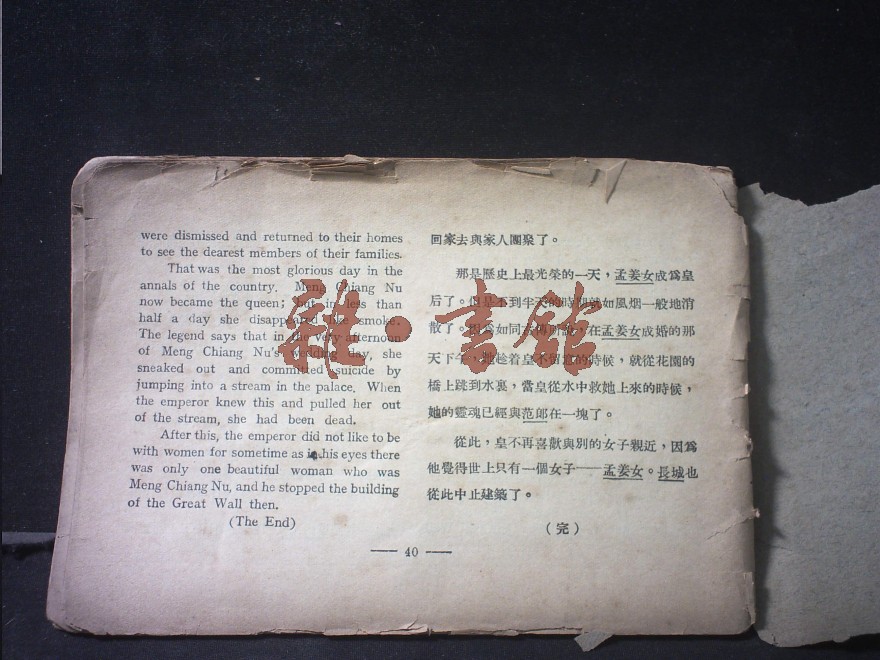 were dismissed and returned to their homes
to see the dearest members of their families.
That was the most glorious day in the
annals of the country. Meng Chiang Nu
now became the queen; but in less than
half a day she disappeared like smoke.
The legend says that in the very afternoon
of Meng Chiang Nu's wedding day, she
sneaked out and committed suicide by
jumping into a stream in the palace. When
the emperor knew this and pulled her out
of the stream, she had been dead.
After this, the emperor did not like to be
with women for sometime as in his eyes there
was only one beautiful woman who was
Meng Chiang Nu, and he stopped the building
of the Great Wall then.
(The End)
回家去與家人團聚了。
那是歷史上最光榮的一天，孟姜女成爲皇
后了。但是不到半天的時期就如風烟一般地消
散了。因爲如同古傳所說，在孟姜女成婚的那
天下午，她趁着皇不留意的時候，就從花園的
橋上跳到水裏，當皇從水中救她上來的時候，
她的靈魂已經與范郎在一塊了。
從此，皇不再喜歡與別的女子親近，因爲
他覺得世上只有一個女子——孟姜女。長城也
從此中止建築了。
（完）
—— 40 ——
雜·書館